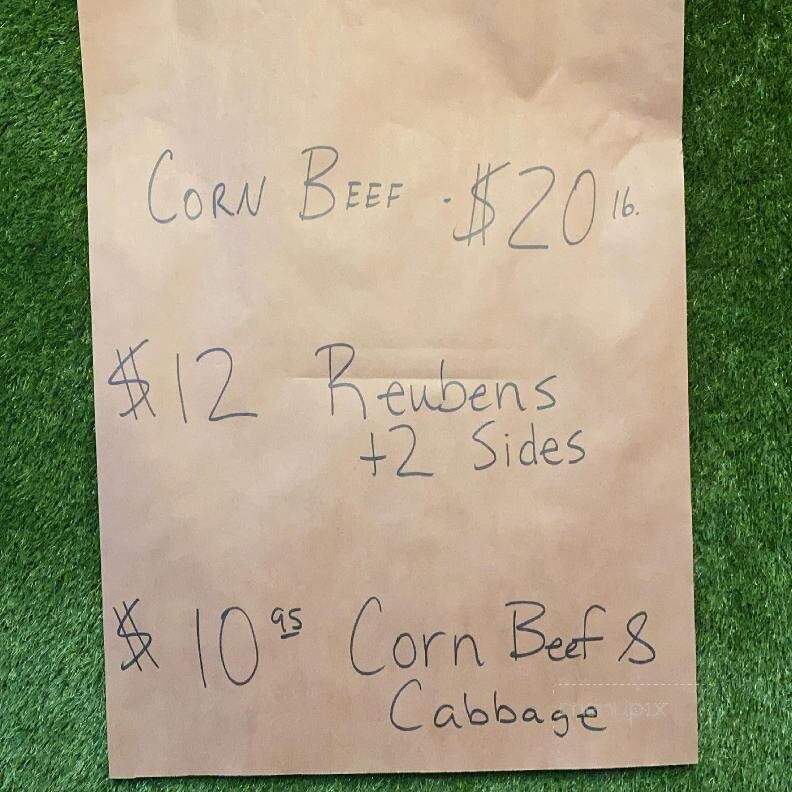 CORN BEEF - $20 lb.
$12 Reubens
+2 Sides
$10 95 Corn Beef &
Cabbage